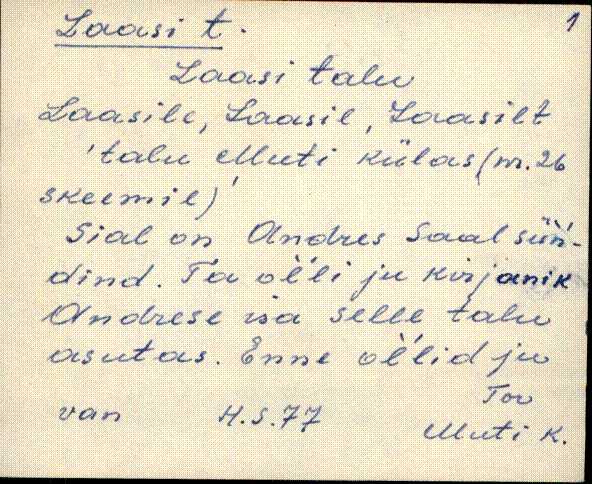 Laasi t.
1
Laasi talu
Laasile, Laasil, Laasilt
'talu Muti külas (nr. 26
skeemil)'
Sial on Andres Saal sün-
dind. Ta olli ju kirjanik
Andrese isa selle talu
asutas. Enne ollid ju
Tor
van H.S.77
Muti k.